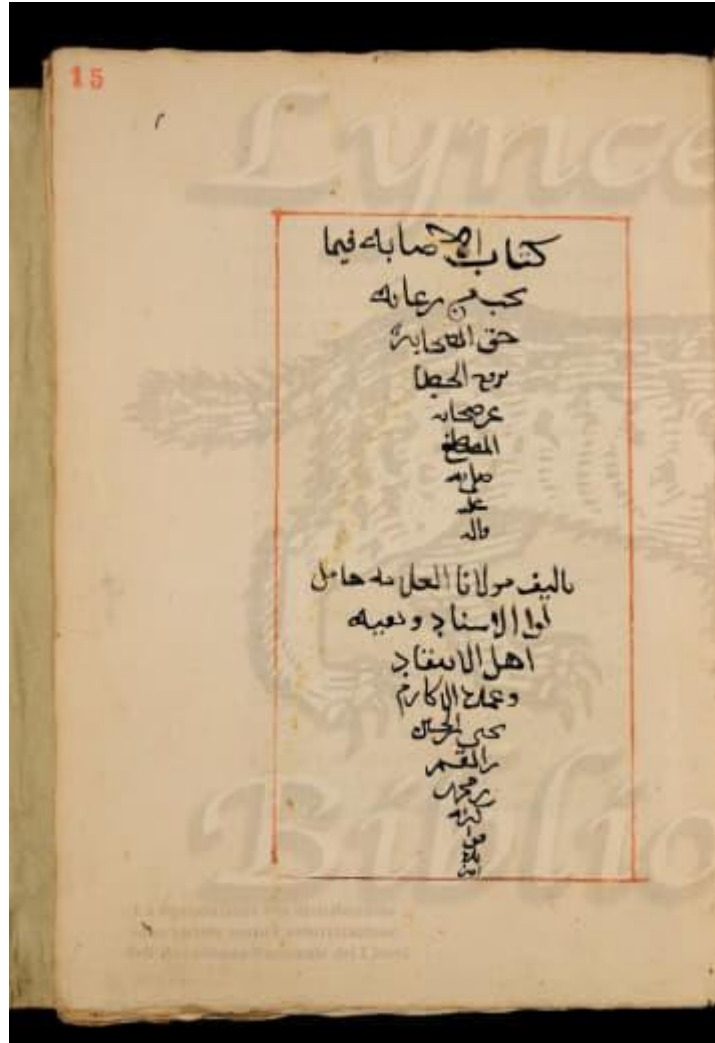 15
٢
Lynce
كتاب الاصابه فيما
يجب من رعايه
حق الصحابة
برفع الخطا
عن صحابه
المصطفى
صلى الله
عليه
واله
تاليف مولانا العلامه حامل
لوا الاسناد و نقيبه
اهل الانتقاد
وعماد الاكارم
يحيى بن الحسين
بن القسم
بن محمد
Biblio